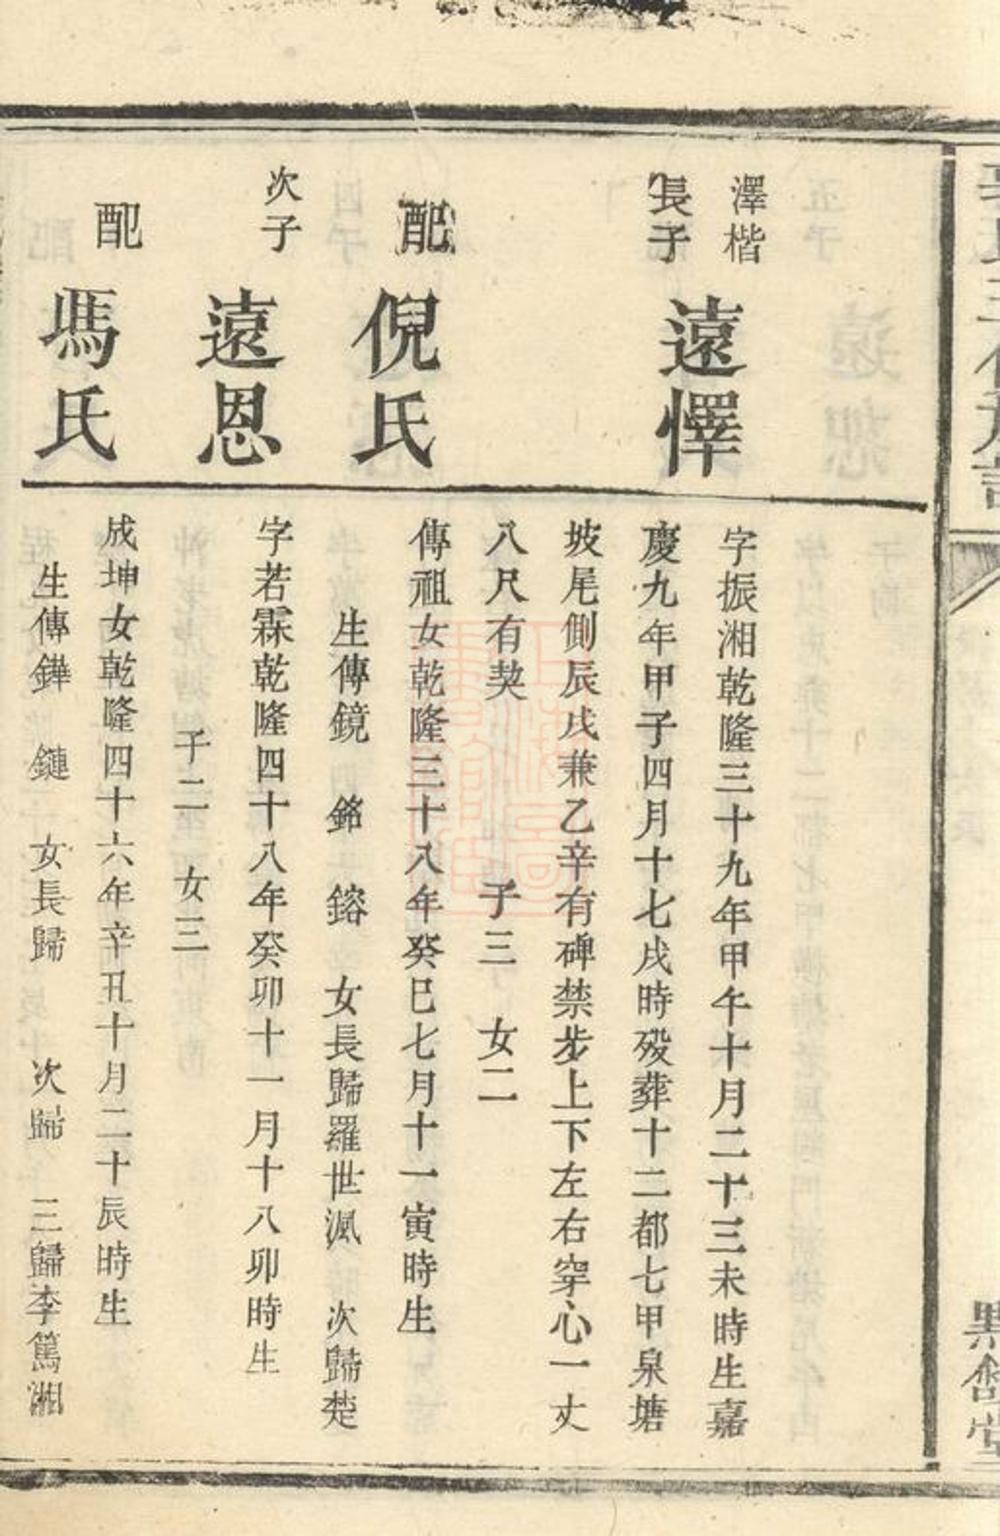 澤楷
長子
遠懌
字振湘乾隆三十九年甲午十月二十三未時生嘉
慶九年甲子四月十七戌時歿葬十二都七甲泉塘
坡尾側辰戌兼乙辛有碑禁步上下左右穿心一丈
八尺有契 子三 女二
配
倪氏
傳祖女乾隆三十八年癸巳七月十一寅時生
生傳鏡 銘 鎔 女長歸羅世渢 次歸楚
次子
遠恩
字若霖乾隆四十八年癸卯十一月十八卯時生
子二 女三
配
馮氏
成坤女乾隆四十六年辛丑十月二十辰時生
生傳鏵 鏈 女長歸 次歸 三歸李篤湘